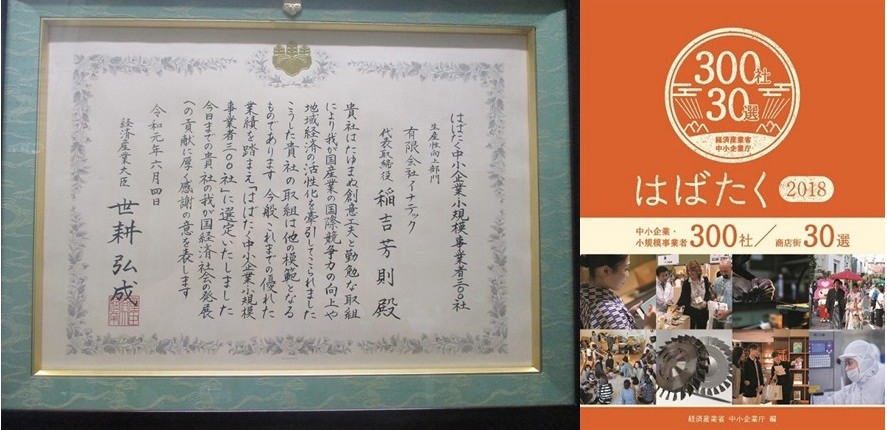 はばたく中小企業小規模事業者三〇〇社
生産性向上部門
有限会社イナテック
代表取締役 稲吉芳則殿
貴社はたゆまぬ創意工夫と勤勉な取組
により我が国産業の国際競争力の向上や
地域経済の活性化を牽引してこられました
こうした貴社の取組は他の模範となる
ものであります 今般、これまでの優れた
業績を踏まえ「はばたく中小企業小規模
事業者三〇〇社」に選定いたしました
今日までの貴社の我が国経済社会の発展
への貢献に厚く感謝の意を表します
令和元年六月四日
経済産業大臣 世耕弘成
300社
30選
経済産業省
中小企業庁
はばたく 2018
中小企業・
小規模事業者 300社/商店街 30選
経済産業省 中小企業庁 編